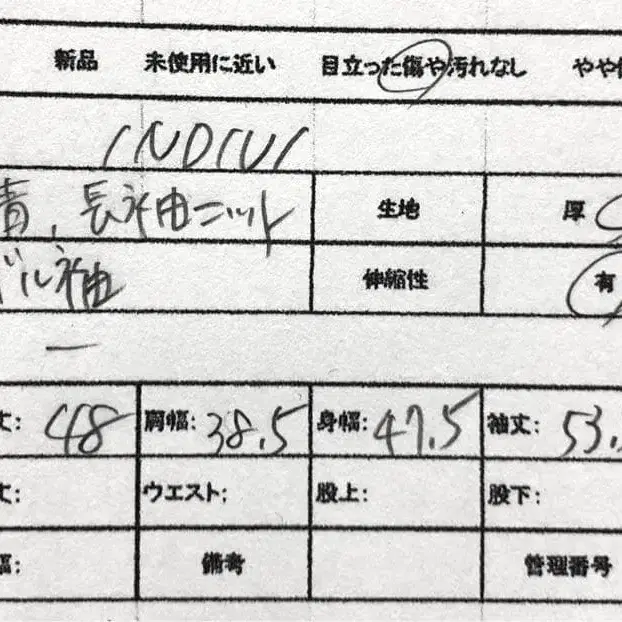 新品 未使用に近い 目立った傷や汚れなし やや
INDIVI
青、長袖ニット 生地 厚
ドル袖 伸縮性 有
ー
丈: 48 肩幅: 38.5 身幅: 47.5 袖丈: 53.
丈: ウエスト: 股上: 股下:
幅: 備考 管理番号